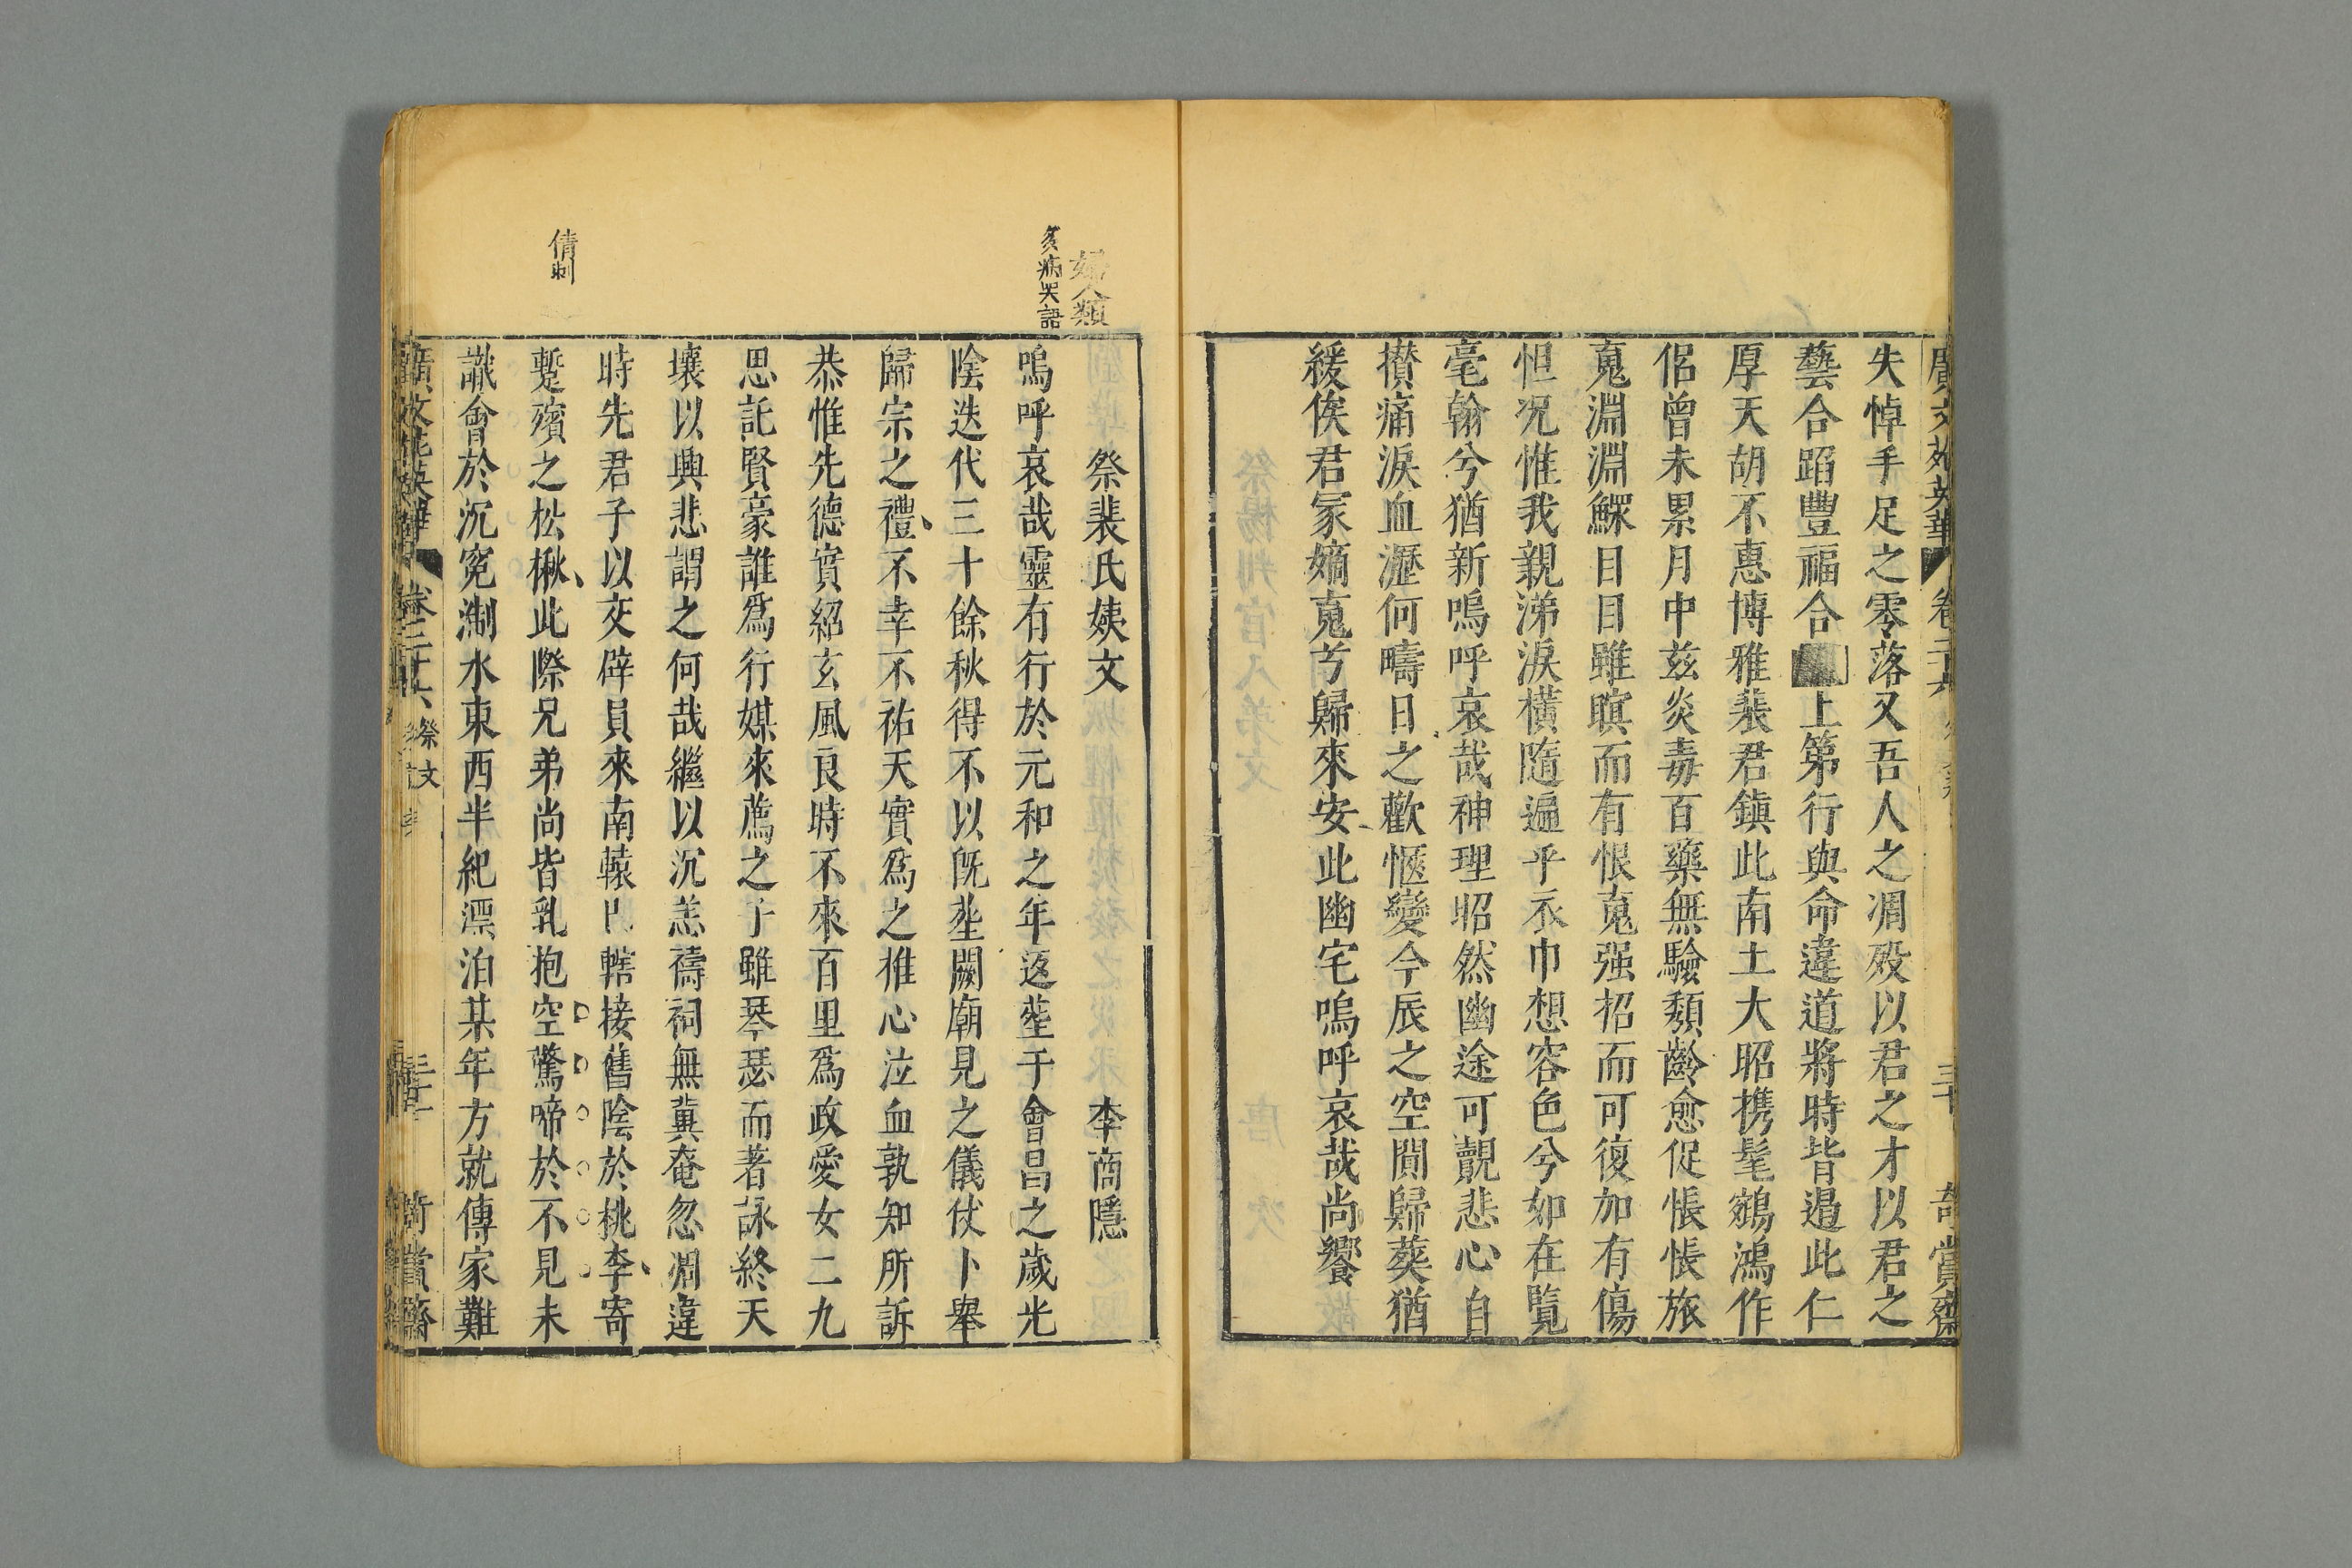 廣文苑英華 卷二十六 三十 奇賞齋
失悼手足之零落又吾人之凋歿以君之才以君之
藝合蹈豐福合上第行與命違道將時皆遏此仁
厚天胡不惠博雅裴君鎮此南土大昭携髦鵷鴻作
侶曾未累月中茲炎毒百藥無驗頹齡愈促悵悵旅
䰟淵淵鰥目目雖瞑而有恨䰟强招而可復加有傷
怛况惟我親涕淚橫隨遍乎衣巾想容色兮如在覽
毫翰兮猶新嗚呼哀哉神理昭然幽途可覿悲心自
攅痛淚血瀝何疇日之歡愜變今辰之空閴歸葬猶
緩俟君冢嫡䰟兮歸來安此幽宅嗚呼哀哉尚饗
婦人類
祭裴氏姨文 李商隱
嗚呼哀哉靈有行於元和之年返塟于會昌之歲光
陰迭代三十餘秋得不以既塟闕廟見之儀仗卜舉
歸宗之禮不幸不祐天實爲之椎心泣血孰知所訴
恭惟先德實紹玄風良時不來百里爲政愛女二九
思託賢豪誰爲行媒來薦之子雖琴瑟而著詠終天
壤以興悲謂之何哉繼以沉恙禱祠無冀奄忽凋違
時先君子以交辟員來南轅已轄接舊陰於桃李寄
蹔殯之松楸此際兄弟尚皆乳抱空驚啼於不見未
倩刺
識會於沉寃淛水東西半紀漂泊某年方就傳家難
廣文苑英華 卷二十六 祭文 奇賞齋